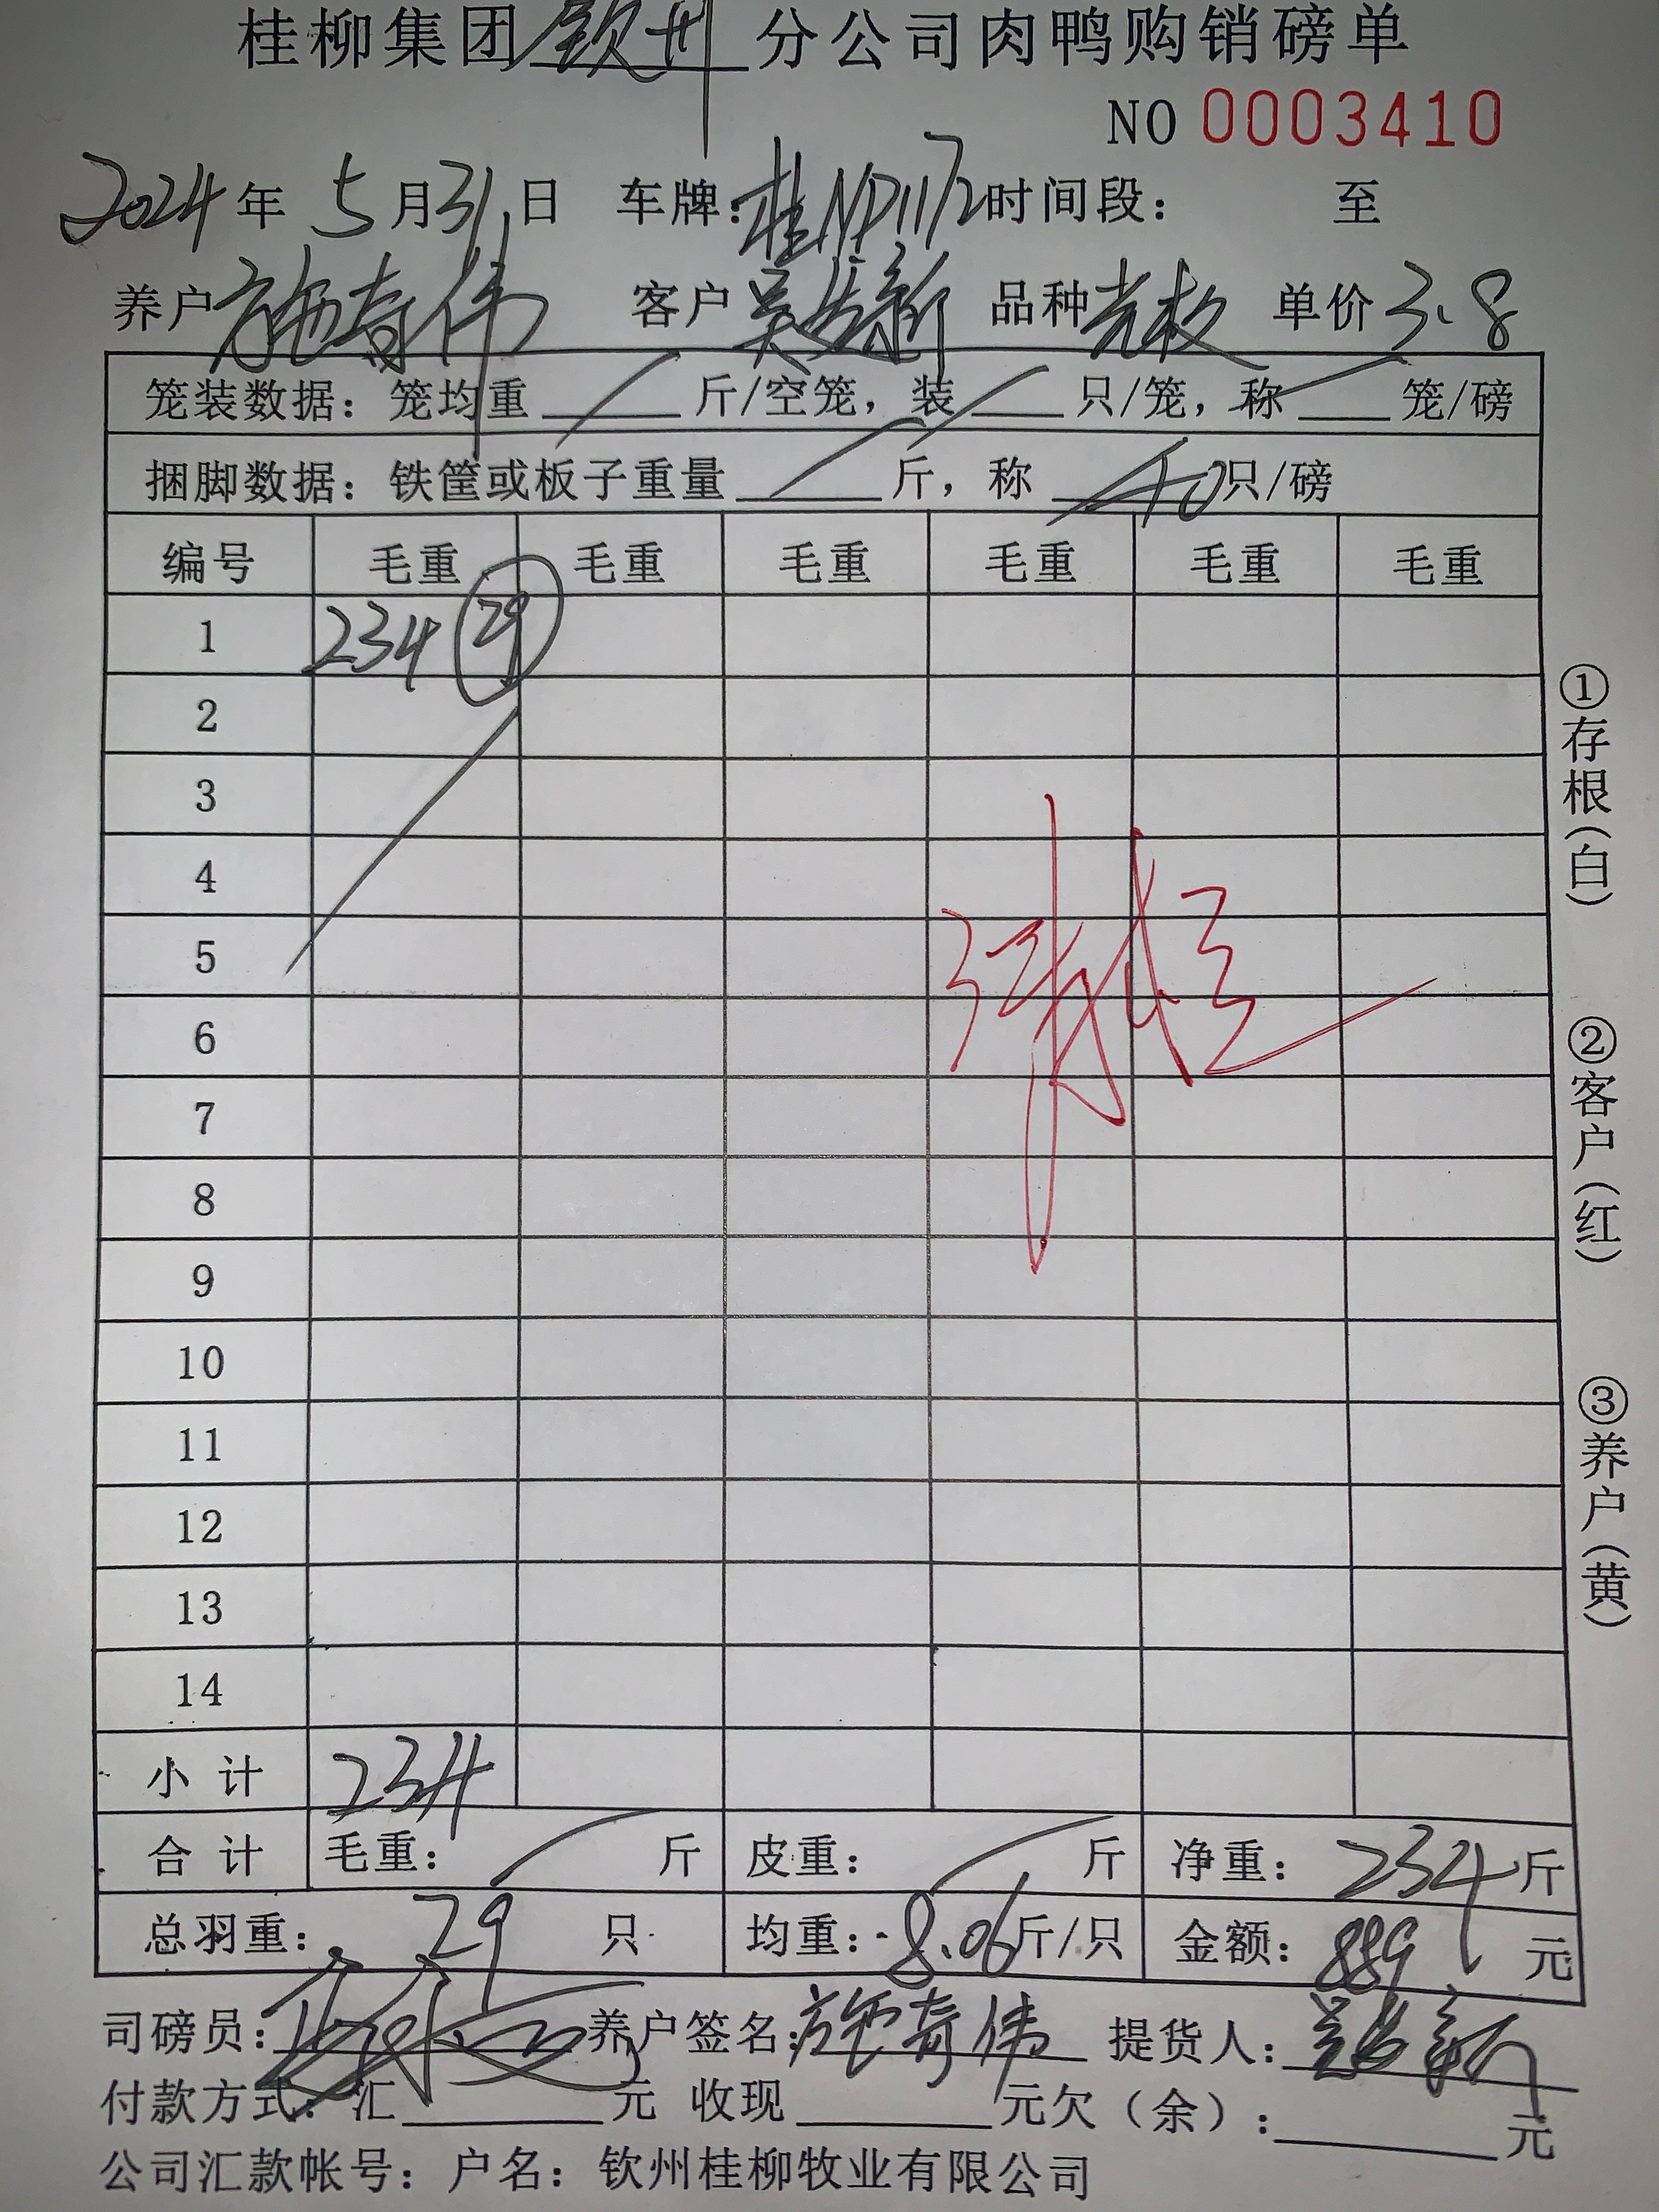 桂柳集团钦州分公司肉鸭购销磅单
NO 0003410
2024年 5月31日 车牌:桂NP1172时间段: 至
养户施奇伟 客户吴 新 品种 单价3.8
笼装数据: 笼均重____斤/空笼, 装____只/笼, 称____笼/磅
捆脚数据: 铁筐或板子重量____斤, 称 40只/磅
编号 毛重 毛重 毛重 毛重 毛重 毛重
1 234 29
2
3
4
5
6
7
8
9
10
11
12
13
14
小计 234
合计 毛重: 斤 皮重: 斤 净重: 234斤
总羽重: 29 只 均重: 8.06斤/只 金额: 889 元
司磅员: 养户签名:施奇伟 提货人:吴 新
付款方式: 汇____元 收现____元欠(余):____元
公司汇款帐号: 户名: 钦州桂柳牧业有限公司
①存根(白)
②客户(红)
③养户(黄)